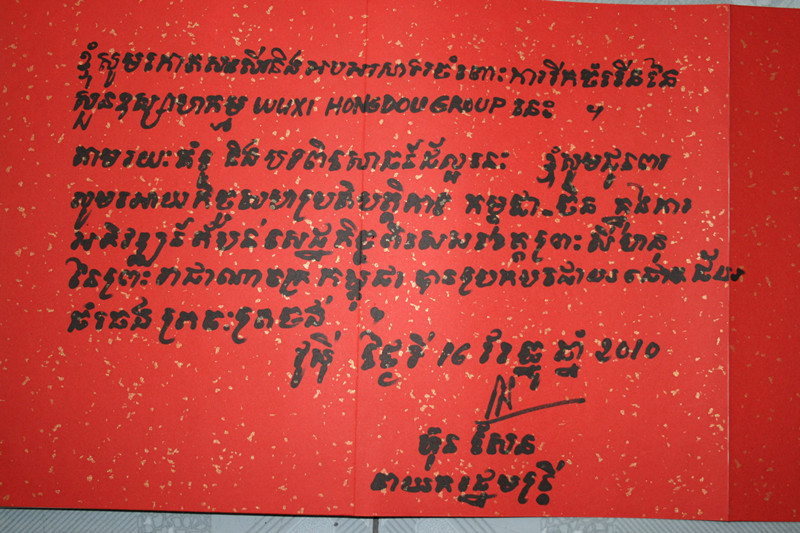 ខ្ញុំសូមកោតសរសើរនិងអបអរសាទរចំពោះការរីកចំរើននៃ
សួនឧស្សាហកម្ម WUXI HONGDOU GROUP នេះ ។
តាមរយៈ និង បទពិសោធន៍ដ៏ល្អនេះ ខ្ញុំសូមជូនពរ
សូមអោយកិច្ចសហប្រតិបត្តិការ កម្ពុជា-ចិន ក្នុងការ
អភិវឌ្ឍន៍តំបន់សេដ្ឋកិច្ចពិសេសខេត្តព្រះសីហនុ
នៃព្រះរាជាណាចក្រកម្ពុជា បានប្រកបដោយជោគជ័យ
ជំរាប
វូស៊ី ថ្ងៃទី 16 ខែធ្នូ ឆ្នាំ 2010
ហ៊ុន សែន
នាយករដ្ឋមន្ត្រី